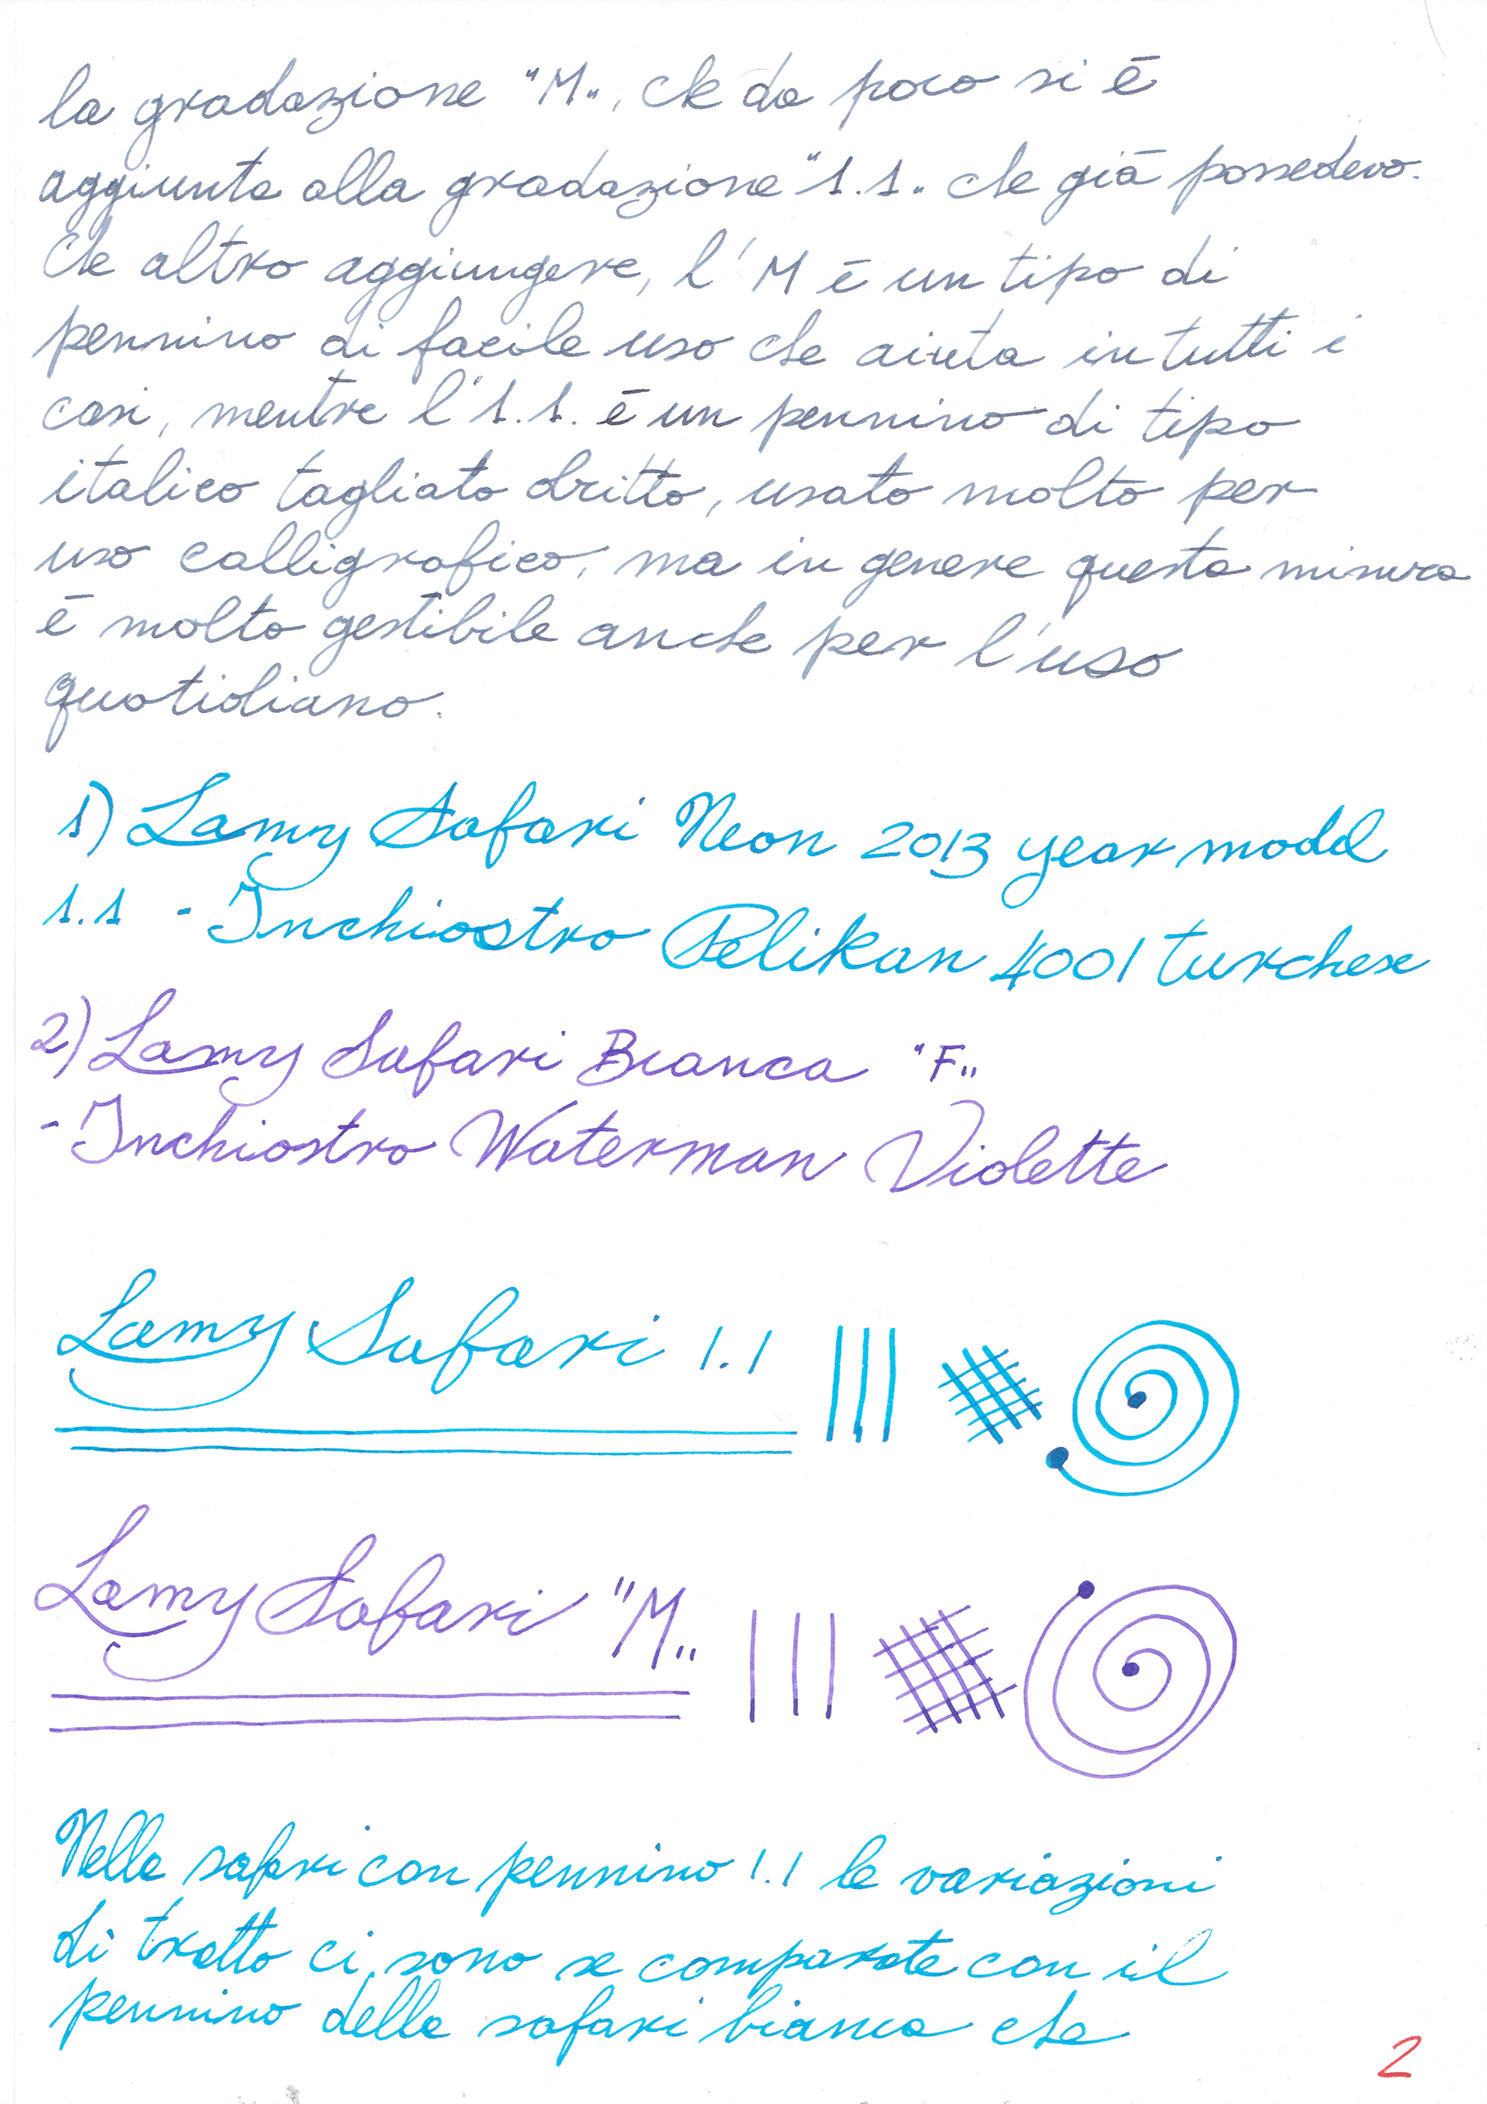 la gradazione "M", che da poco si è
aggiunta alla gradazione "1.1" che già possedevo.
Che altro aggiungere, l'M è un tipo di
pennino di facile uso che aiuta in tutti i
casi, mentre l'1.1. è un pennino di tipo
italico tagliato dritto, usato molto per
uso calligrafico, ma in genere questa misura
è molto gestibile anche per l'uso
quotidiano.
1) Lamy Safari Neon 2013 year model
1.1 - Inchiostro Pelikan 4001 turchese
2) Lamy Safari Bianca "F"
- Inchiostro Waterman Violette
Lamy Safari 1.1
Lamy Safari "M"
Nella safari con pennino 1.1 le variazioni
di tratto ci sono se comparate con il
pennino della safari bianca che
2